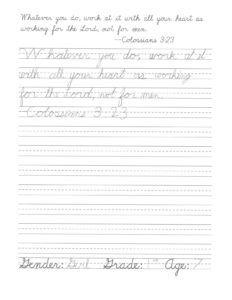 Whatever you do, work at it with all your heart as
working for the Lord, not for men.
--Colossians 3:23
Whatever you do, work at it
with all your heart as working
for the Lord, not for men.
-Colossians 3:23
Gender: Girl Grade: 1st Age: 7